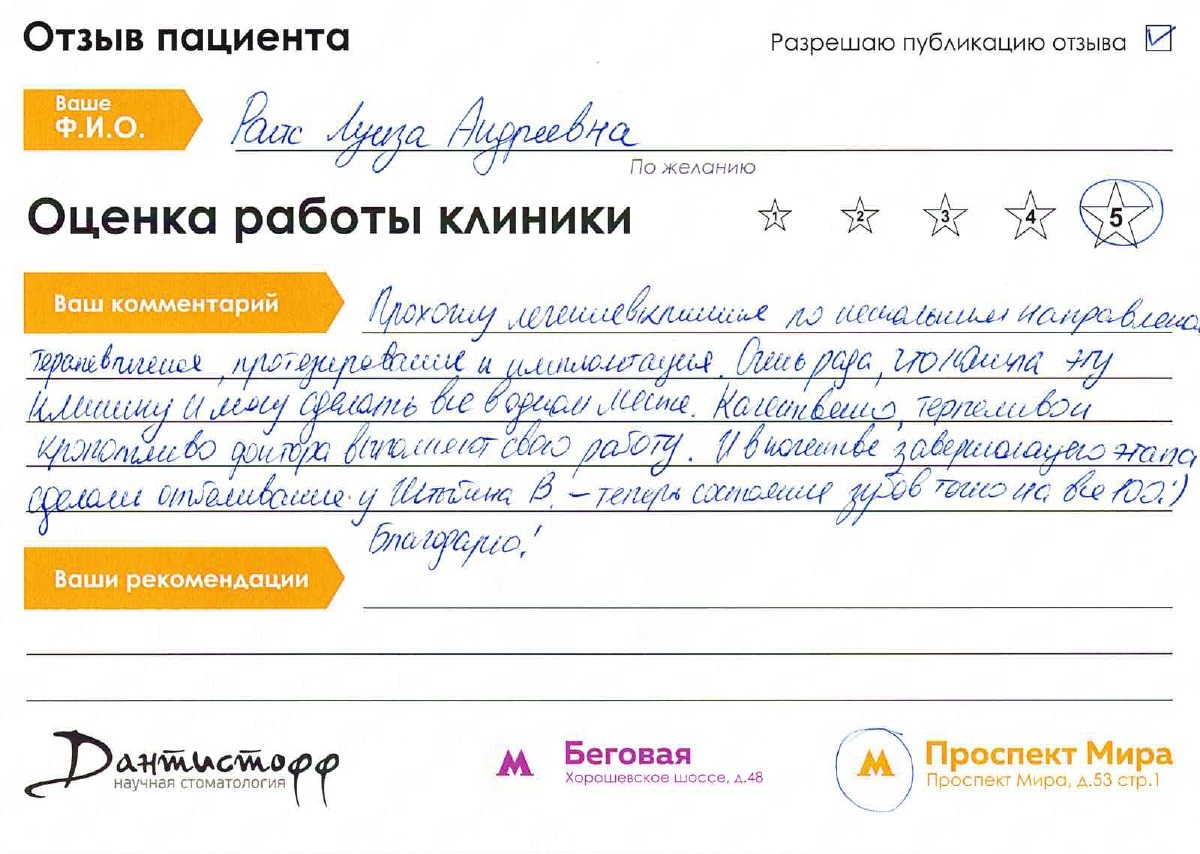 Отзыв пациента
Разрешаю публикацию отзыва
Ваше
Ф.И.О.
Луиза Андреевна
По желанию
Оценка работы клиники
1 2 3 4 5
Ваш комментарий
Прохожу лечение в клинике по нескольким направлениям
терапевтическая, протезирование и имплантация. Очень рада, что нашла эту
клинику и могу сделать все в одном месте. Качественно, терпеливо и
кропотливо доктора выполняют свою работу. И в качестве завершающего этапа
сделали отбеливание у В. – теперь состояние зубов точно на все 100:)
Благодарю!
Ваши рекомендации
Дантистофф
научная стоматология
Беговая
Хорошевское шоссе, д.48
Проспект Мира
Проспект Мира, д.53 стр.1